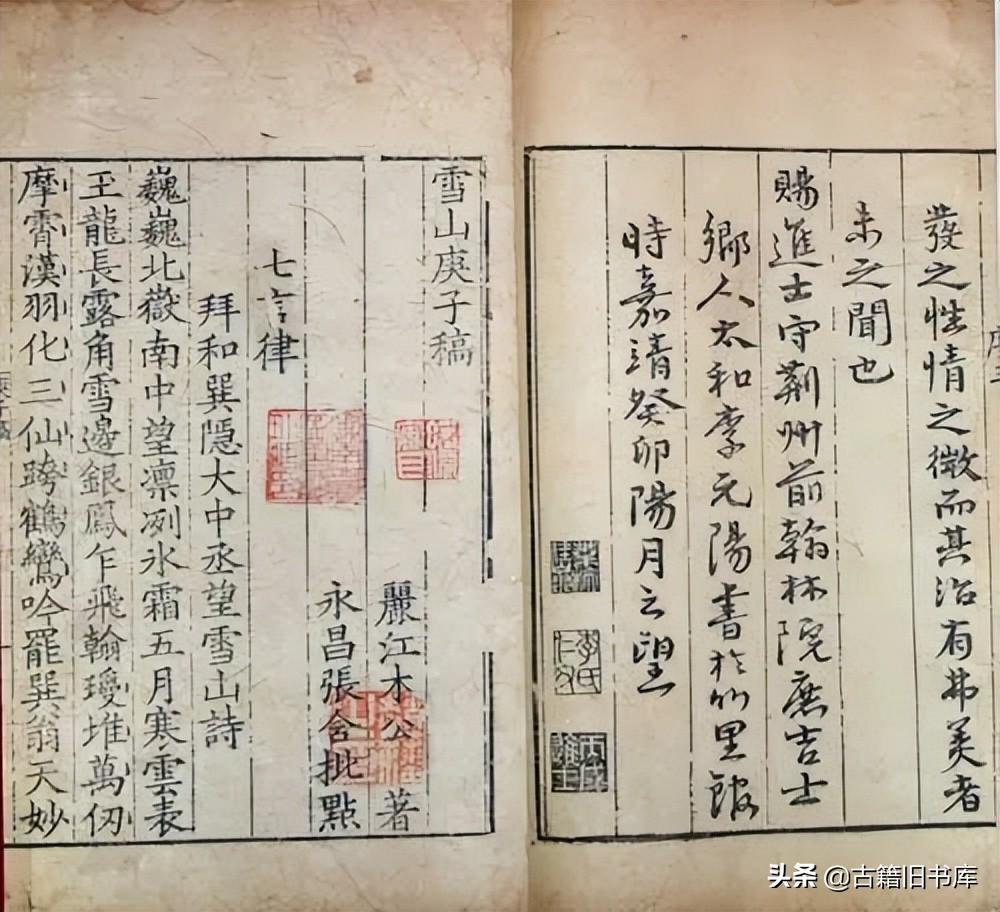 發之性情之微而其治有弗美者
未之聞也
賜進士守荆州前翰林院庶吉士
鄉人太和李元陽書於竹里館
時嘉靖癸卯陽月之望
李氏
雪山庚子稿
麗江木公著
永昌張含批點
七言律
拜和巽隱大中丞望雪山詩
巍巍北嶽南中望凛冽氷霜五月寒雲表
玉龍長露角雪邊銀鳳乍飛翰璦堆萬仞
摩霄漢羽化三仙跨鶴鸞吟罷巽翁天妙
头条 @古籍旧书库